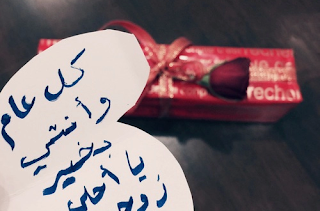 كل عام
وأنتي
بخير
يا أحلى
زوج